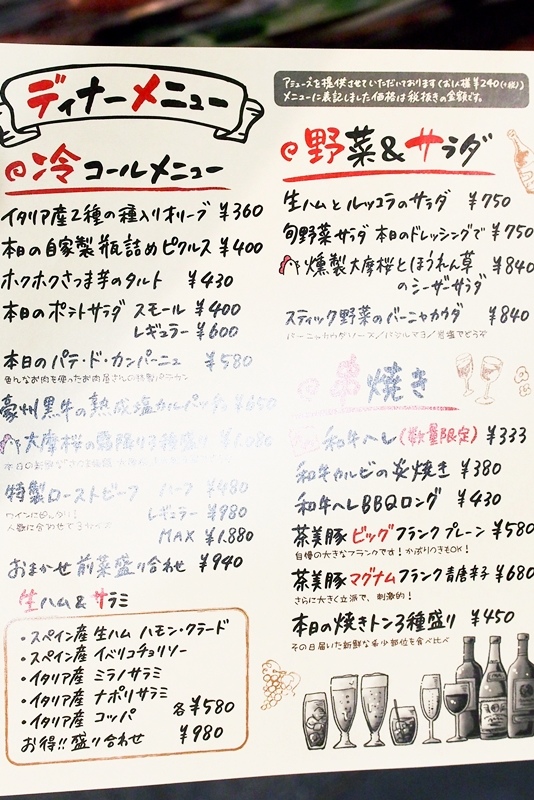 ディナーメニュー
アミューズを提供させていただいております(お1人様 ¥240(+税))
メニューに表記しました価格は税抜きの金額です。
冷コールメニュー
イタリア産2種の種入りオリーブ ¥360
本日の自家製 瓶詰めピクルス ¥400
ホクホクさつま芋のタルト ¥430
本日のポテトサラダ スモール ¥400
レギュラー ¥600
本日のパテ・ド・カンパーニュ ¥580
豪州黒牛の熟成塩カルパッチョ ¥850
大摩桜の霜降り3種盛り ¥1,080
特製ローストビーフ ハーフ ¥480
レギュラー ¥980
MAX ¥1.880
おまかせ 前菜盛り合わせ ¥940
生ハム&サラミ
・スペイン産 生ハム ハモン・クラード
・スペイン産 イベリコチョリソー
・イタリア産 ミラノサラミ
・イタリア産 ナポリサラミ
・イタリア産 コッパ 各¥580
お得!!盛り合わせ ¥980
野菜&サラダ
生ハムとルッコラのサラダ ¥750
旬野菜サラダ 本日のドレッシングで ¥750
燻製大摩桜とほうれん草 ¥840
のシーザーサラダ
スティック野菜のバーニャカウダ ¥840
バーニャカウダソース/バジルマヨ/岩塩でどうぞ
串焼き
和牛ヘレ(数量限定) ¥333
和牛カルビの炙焼き ¥380
和牛ヘレBBQロング ¥430
茶美豚ビッグフランク プレーン ¥580
自慢の大きなフランクです!かぶりつきもOK!
茶美豚マグナムフランク 青唐辛子 ¥680
さらに大きく立派で、刺激的!
本日の焼きトン3種盛り ¥450
その日届いた新鮮な希少部位を食べ比べ